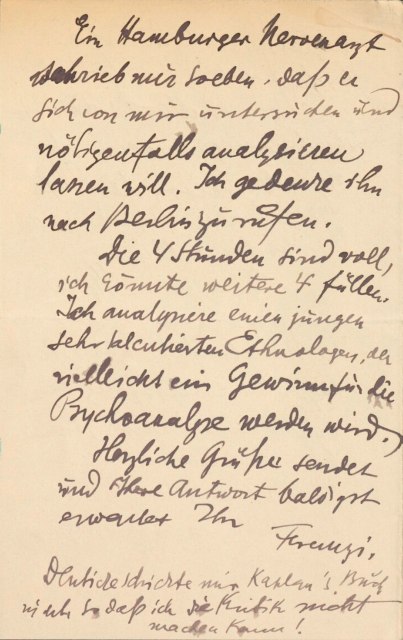 Ein Hamburger Nervenarzt
schrieb mir soeben, daß er
sich von mir untersuchen und
nötigenfalls analysieren
lassen will. Ich gedenke ihn
nach Berlin zu rufen.
Die 4 Stunden sind voll,
ich könnte weitere 4 füllen.
Ich analysiere einen jungen
sehr talentierten Ethnologen, der
vielleicht ein Gewinn für die
Psychoanalyse werden wird.
Herzliche Grüße sendet
und Ihre Antwort baldigst
erwartet Ihr
Ferenczi.
Deuticke schickte mir Kaplan's Buch
nicht so daß ich die Kritik nicht
machen kann!